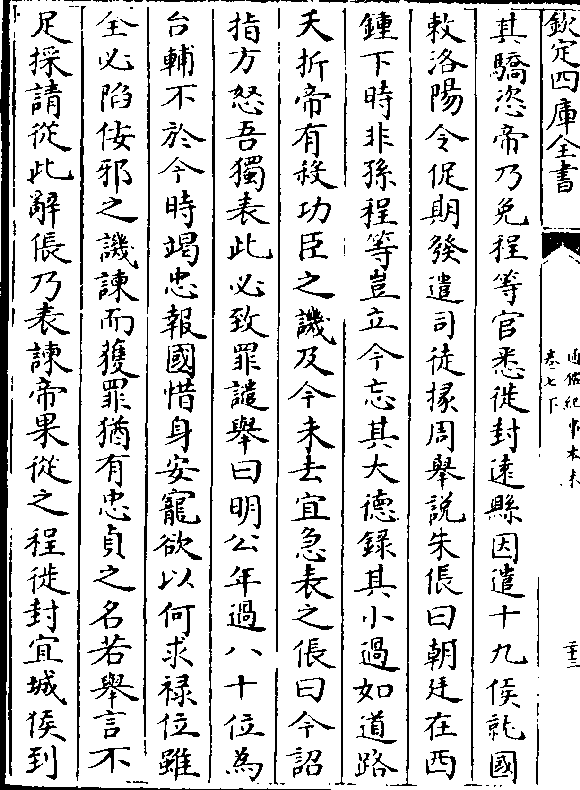 欽定四庫全書
通鑑紀事本末
卷七下
其驕恣帝乃免程等官悉徙封遠縣因遣十九侯就國
敕洛陽令促期發遣司徒掾周舉說朱倀曰朝廷在西
鍾下時非孫程等豈立今忘其大德錄其小過如道路
夭折帝有殺功臣之譏及今未去宜急表之倀曰今詔
指方怒吾獨表此必致罪譴舉曰明公年過八十位為
台輔不於今時竭忠報國惜身安寵欲以何求祿位雖
全必陷佞邪之譏諫而獲罪猶有忠貞之名若舉言不
足採請從此辭倀乃表諫帝果從之程徙封宜城侯到